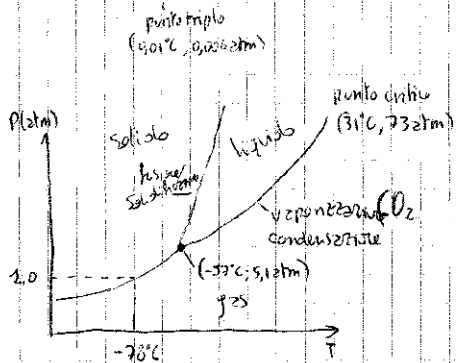 punto triplo
(0,01°C, 0,006atm)
punto critico
(31°C, 73atm)
P(atm)
solido
liquido
fusione/
solidificazione
vaporizzazione
condensazione
CO2
(-57°C; 5,1atm)
gas
1,0
-78°C
T